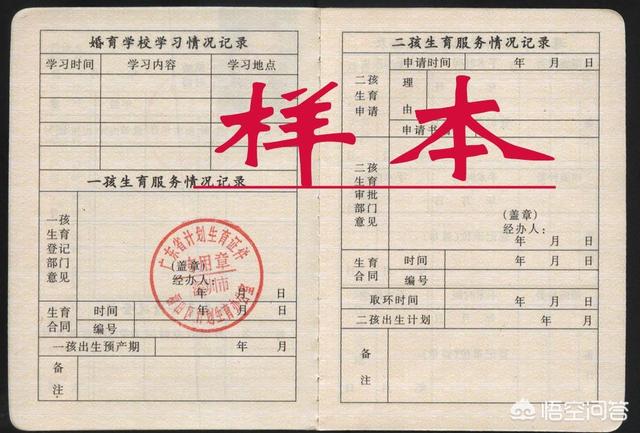 婚育学校学习情况记录
学习时间 学习内容 学习地点
一孩生育服务情况记录
一孩
生育
登记
部门
意见
广东省计划生育证件
专用章
深圳市
(盖章)
经办人:
年 月 日
生育
合同
时间 年 月 日
编号
一孩出生预产期 年 月
备
注
二孩生育服务情况记录
二孩
生育
申请
申请时间 年 月 日
理
由
申请书
二孩
生育
审批
部门
意见
(盖章)
经办人:
年 月 日
生育
合同
时间 年 月 日
编号
取环时间 年 月 日
二孩出生计划 年 月
备
注
样本
悟空问答